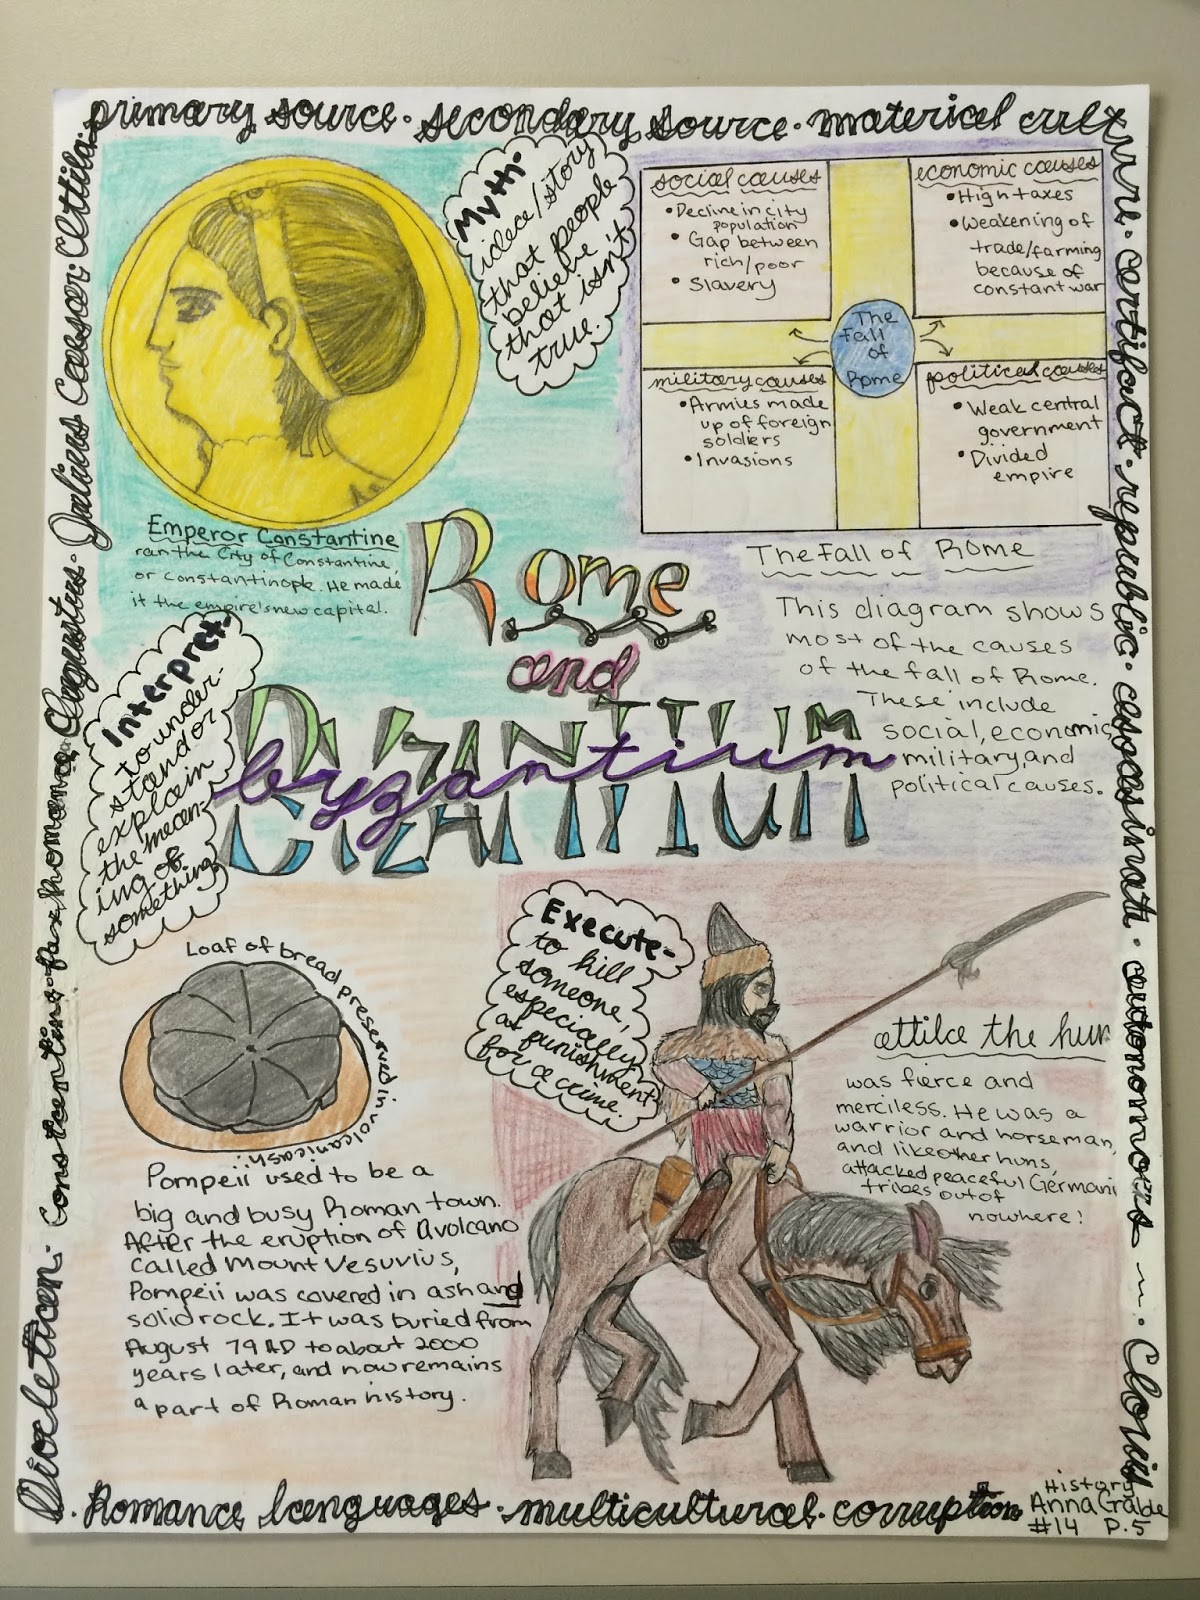 primary source · secondary source · material culture · artifact · republic · assassinate · autonomous ~ · Clovis
Myth-
idea/story
that people
believe
that isn't
true.
social causes
• Decline in city
population
• Gap between
rich/poor
• Slavery
economic causes
• High taxes
• Weakening of
trade/farming
because of
constant war
The
Fall
of
Rome
military causes
• Armies made
up of foreign
soldiers
• Invasions
political causes
• Weak central
government
• Divided
empire
Emperor Constantine
ran the City of Constantine,
or Constantinople. He made
it the empire's new capital.
Rome
and
Byzantium
byzantium
The Fall of Rome
This diagram shows
most of the causes
of the fall of Rome.
These include
social, economic,
military, and
political causes.
Interpret-
to under-
stand or
explain
the mean-
ing of
something
Loaf of bread preserved in volcanic ash:
Pompeii used to be a
big and busy Roman town.
After the eruption of a volcano
called Mount Vesuvius,
Pompeii was covered in ash and
solid rock. It was buried from
August 79 AD to about 2000
years later, and now remains
a part of Roman history.
Execute-
to kill
someone,
especially
as punishment
for a crime.
attila the hun
was fierce and
merciless. He was a
warrior and horseman,
and like other huns,
attacked peaceful Germani
tribes out of
nowhere!
Diocletian · Constantine · Pax Romana · Augustus · Julius Caesar · Attila ·
· Romance languages · multicultural · corruption
History
Anna
#14 P.5